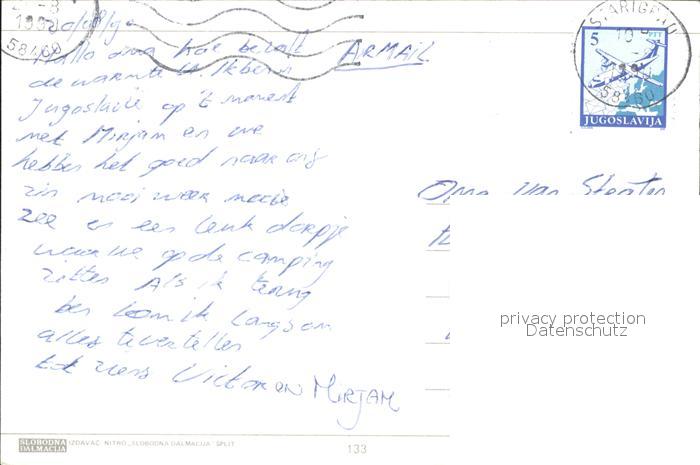 Hallo oma hoe bevalt
de warmte U. Ik ben in
Jugoslavië op 't moment
met Mirjam en we
hebben het goed naar ons
zin mooi weer mooie
zee en een leuk dorpje
waar we op de camping
zitten Als ik terug
ben kom ik langs om
alles te vertellen
tot ziens Victor en MIRJAM
ARMAIL
STARIGRAD
58460
5
PTT
JUGOSLAVIJA
Oma van
privacy protection
Datenschutz
SLOBODNA
DALMACIJA
IZDAVAČ NITRO „SLOBODNA DALMACIJA" SPLIT
133